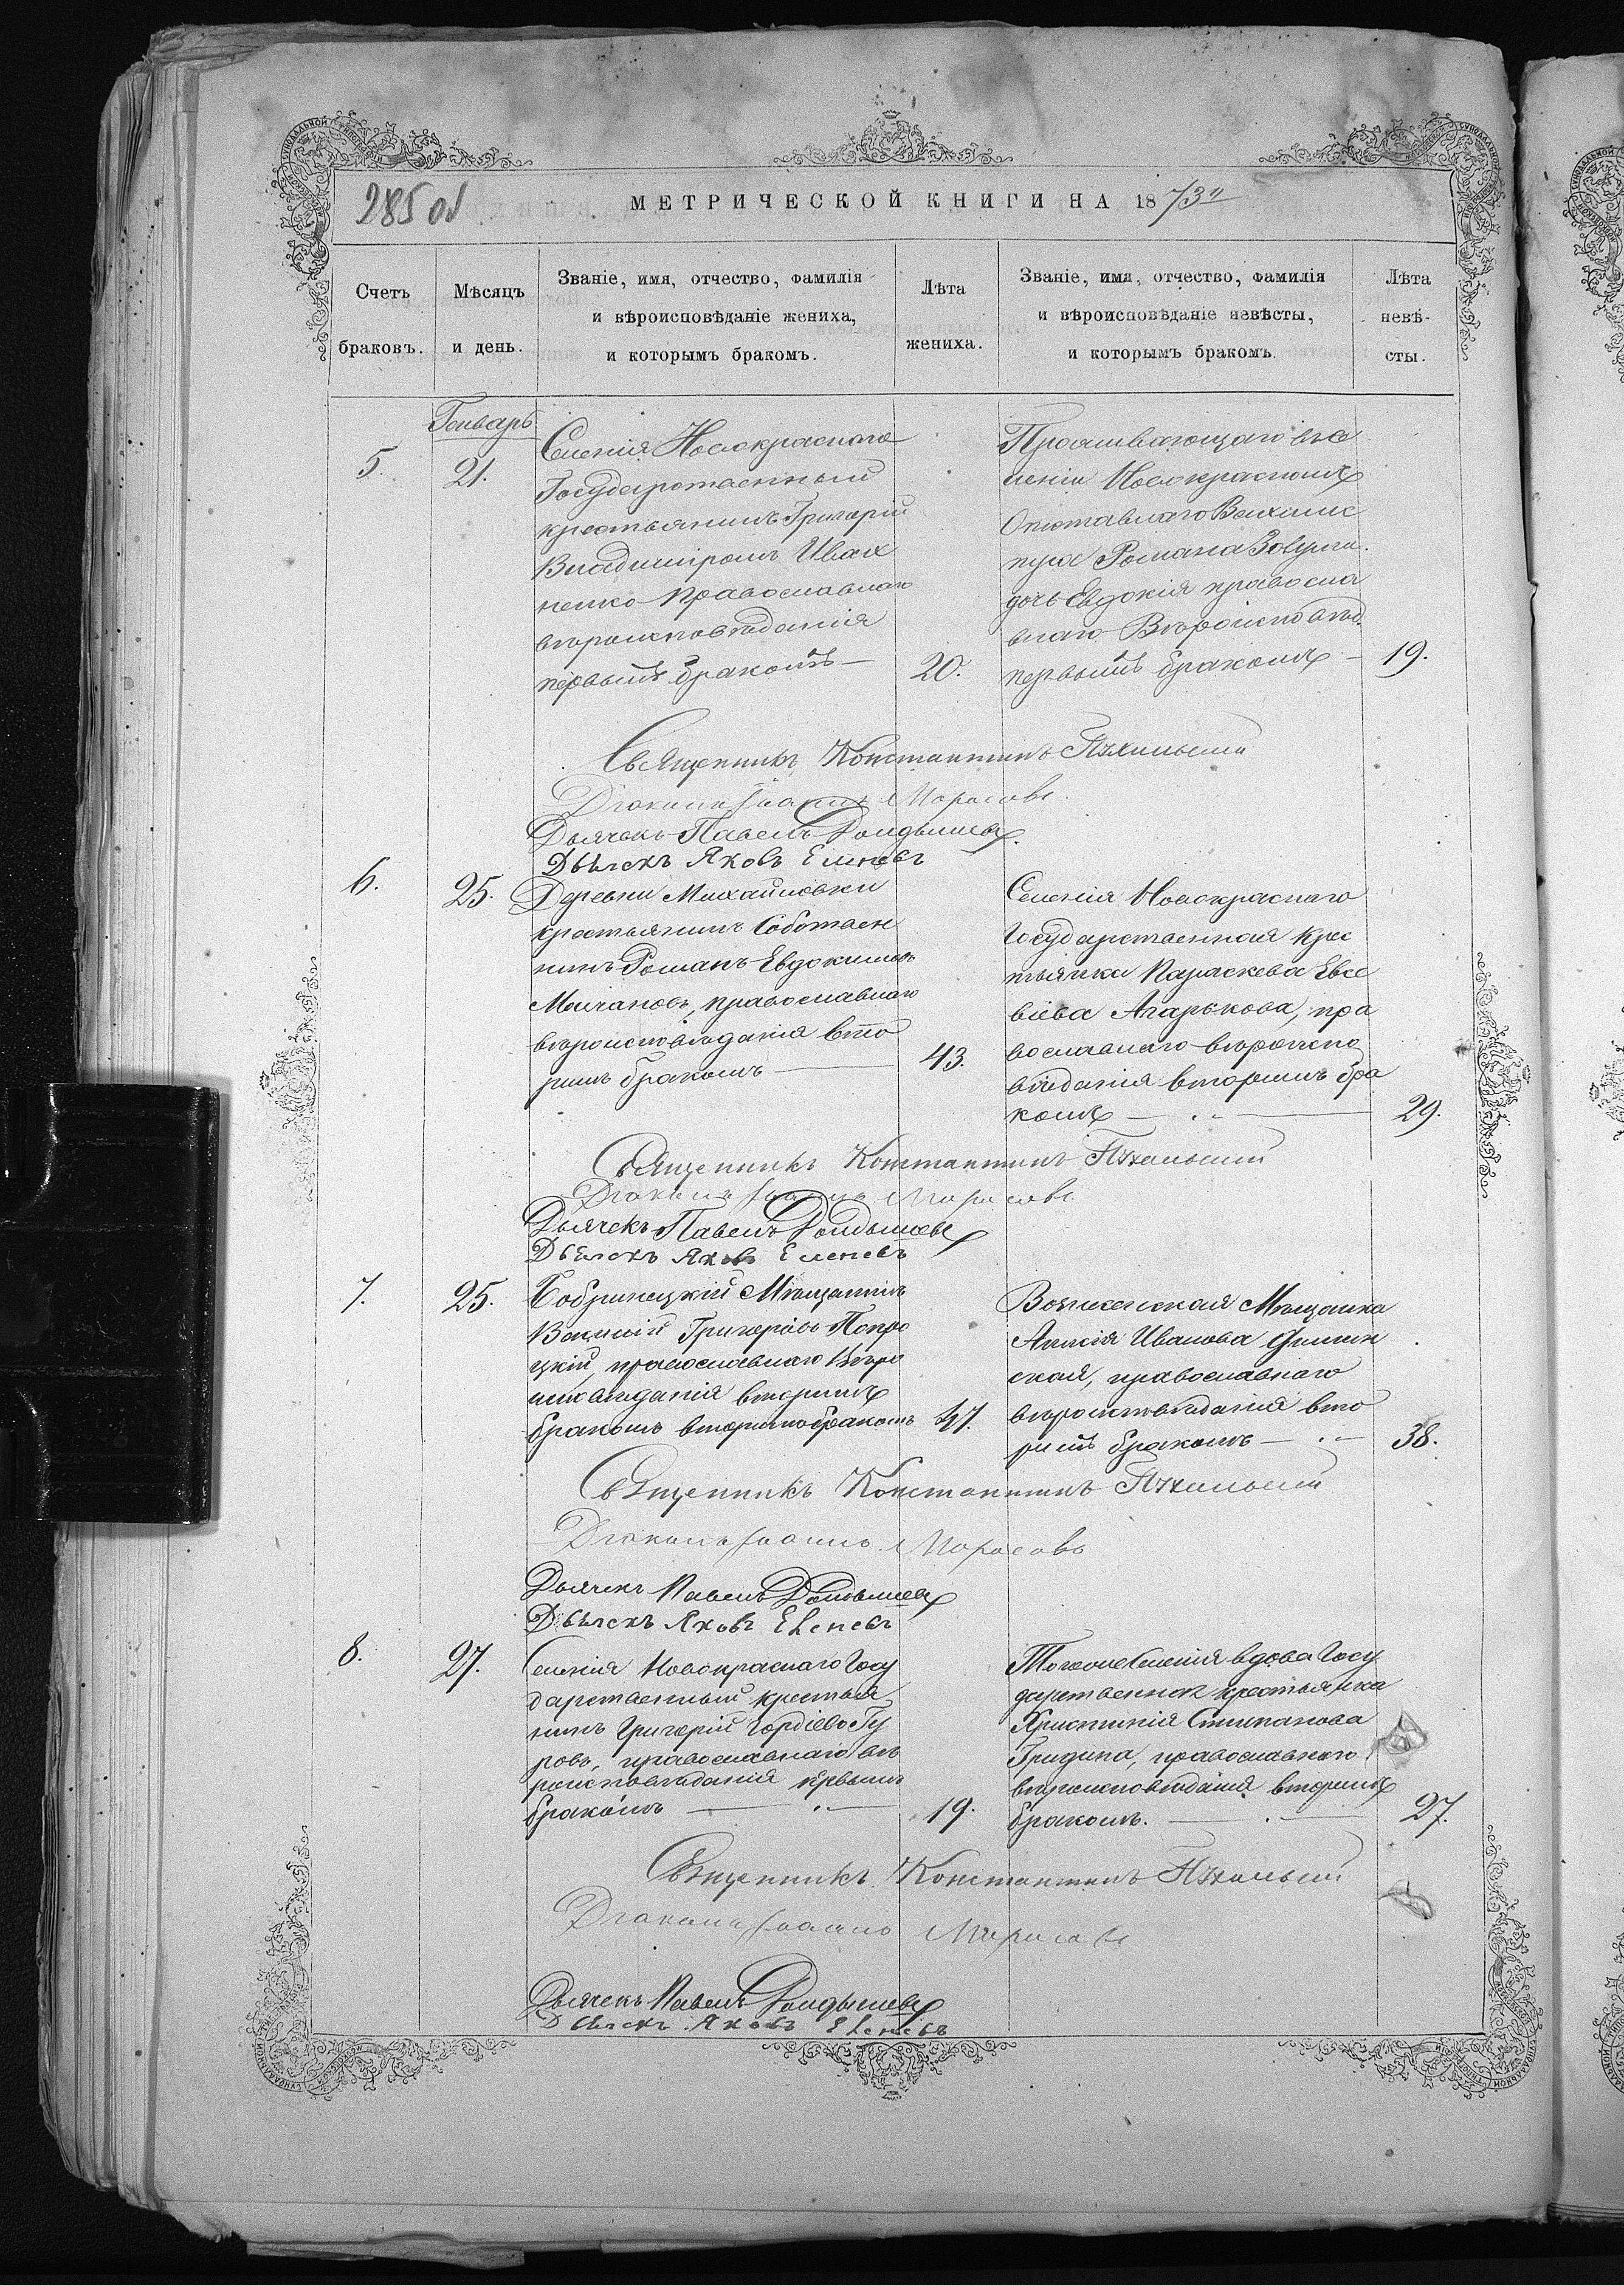 285 об
МЕТРИЧЕСКОЙ КНИГИ НА 1873й
Счетъ браковъ.
Мѣсяцъ и день.
Званіе, имя, отчество, фамилія
и вѣроисповѣданіе жениха,
и которымъ бракомъ.
Лѣта жениха.
Званіе, имя, отчество, фамилія
и вѣроисповѣданіе невѣсты,
и которымъ бракомъ.
Лѣта невѣ-
сты.
Генварь
5.
21.
Селенія Новокраснаго
Государственный
крестьянинъ Григорій
Владиміровъ Ивах
ненко православнаго
вѣроисповѣданія
первымъ бракомъ —
20.
Проживающаго въ се
леніи Новокрасномъ
Отставнаго
Романа
дочь Евдокія правосла
внаго Вѣроисповѣд.
первымъ бракомъ —
19.
Священникъ Константинъ
Діаконъ Іоаннъ
Дьячекъ Павелъ
Дьячекъ Яковъ Еленевъ
6.
25.
Деревни Михайловки
крестьянинъ Собствен
никъ Романъ Евдокимовъ
Молчановъ, православнаго
вѣроисповѣданія вто
римъ бракомъ —
43.
Селенія Новокраснаго
Государственная крес
тьянка Параскева Евсе
віева Агаркова, пра
вославнаго вѣроиспо
вѣданія вторимъ бра
комъ —
29.
Священникъ Константинъ
Діаконъ Іоаннъ
Дьячекъ Павелъ
Дьячекъ Яковъ Еленевъ
7.
25.
Бобринецкій Мѣщанинъ
Василій Григорьевъ Попро
цкій, православнаго Вѣро
исповѣданія вторимъ
бракомъ вторимъ бракомъ
47.
Вознесенская Мѣщанка
Анисія Иванова
ская, православнаго
вѣроисповѣданія вто
римъ бракомъ —
38.
Священникъ Константинъ
Діаконъ Іоаннъ
Дьячекъ Павелъ
Дьячекъ Яковъ Еленевъ
8.
27.
Селенія Новокраснаго Госу
дарственный крестья
нинъ Григорій Гордіевъ Гу
ровъ, православнаго вѣ
роисповѣданія первымъ
бракомъ —
19.
Тогоже Селенія вдова Госу
дарственная крестьянка
Христинія Степанова
Гридина, православнаго
вѣроисповѣданія вторимъ
бракомъ. —
27.
Священникъ Константинъ
Діаконъ Іоаннъ
Дьячекъ Павелъ
Дьячекъ Яковъ Еленевъ